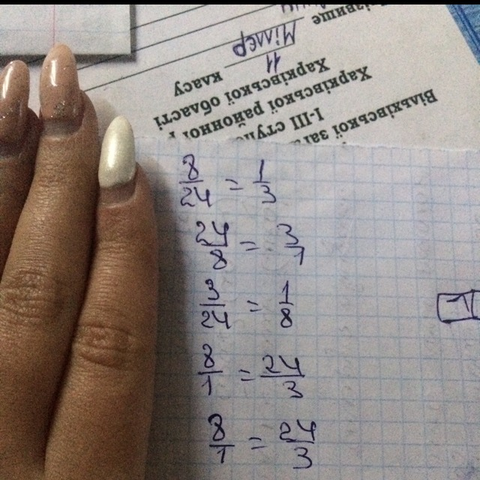 Вільхівської заг
І-ІІІ ступе
Харківської районної
Харківської області
11 класу
Міллер
8/24 = 1/3
24/8 = 3/1
3/24 = 1/8
8/1 = 24/3
8/1 = 24/3